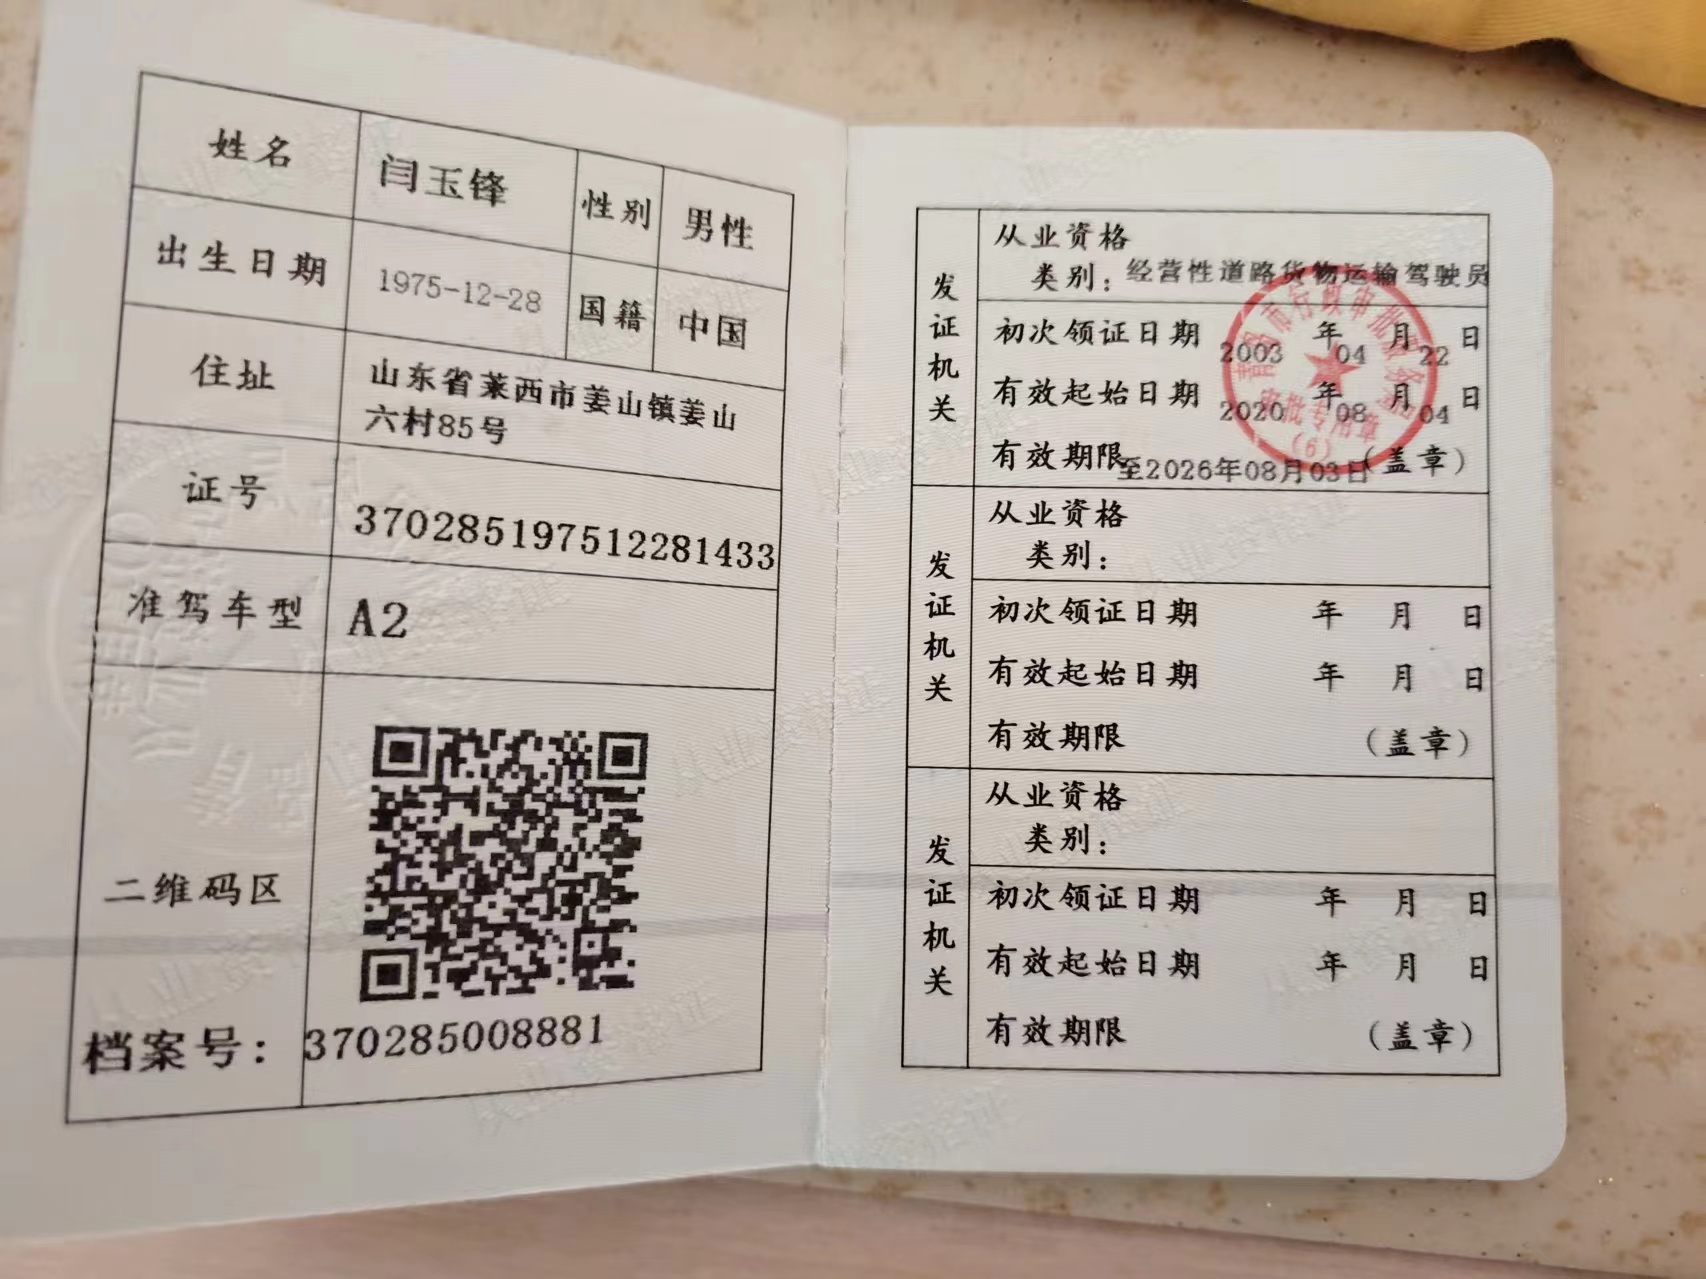 姓名 闫玉锋 性别 男性
出生日期 1975-12-28 国籍 中国
住址 山东省莱西市姜山镇姜山
六村85号
证号 370285197512281433
准驾车型 A2
二维码区
档案号: 370285008881
发证机关
从业资格
类别: 经营性道路货物运输驾驶员
初次领证日期 2003 年 04 月 22 日
有效起始日期 2020 年 08 月 04 日
有效期限 至2026年08月03日 (盖章)
青岛市行政审批服务局
审批专用章
(6)
发证机关
从业资格
类别:
初次领证日期 年 月 日
有效起始日期 年 月 日
有效期限 (盖章)
发证机关
从业资格
类别:
初次领证日期 年 月 日
有效起始日期 年 月 日
有效期限 (盖章)